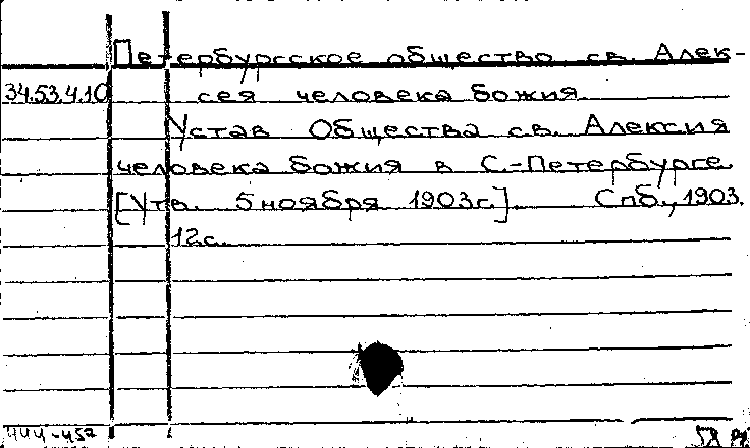 Петербургское общество св. Алек-
34.53.4.10 сея человека божия
Устав Общества св. Алексия
человека божия в С.-Петербурге.
[Утв. 5 ноября 1903г.]. Спб., 1903.
12с.
444-452